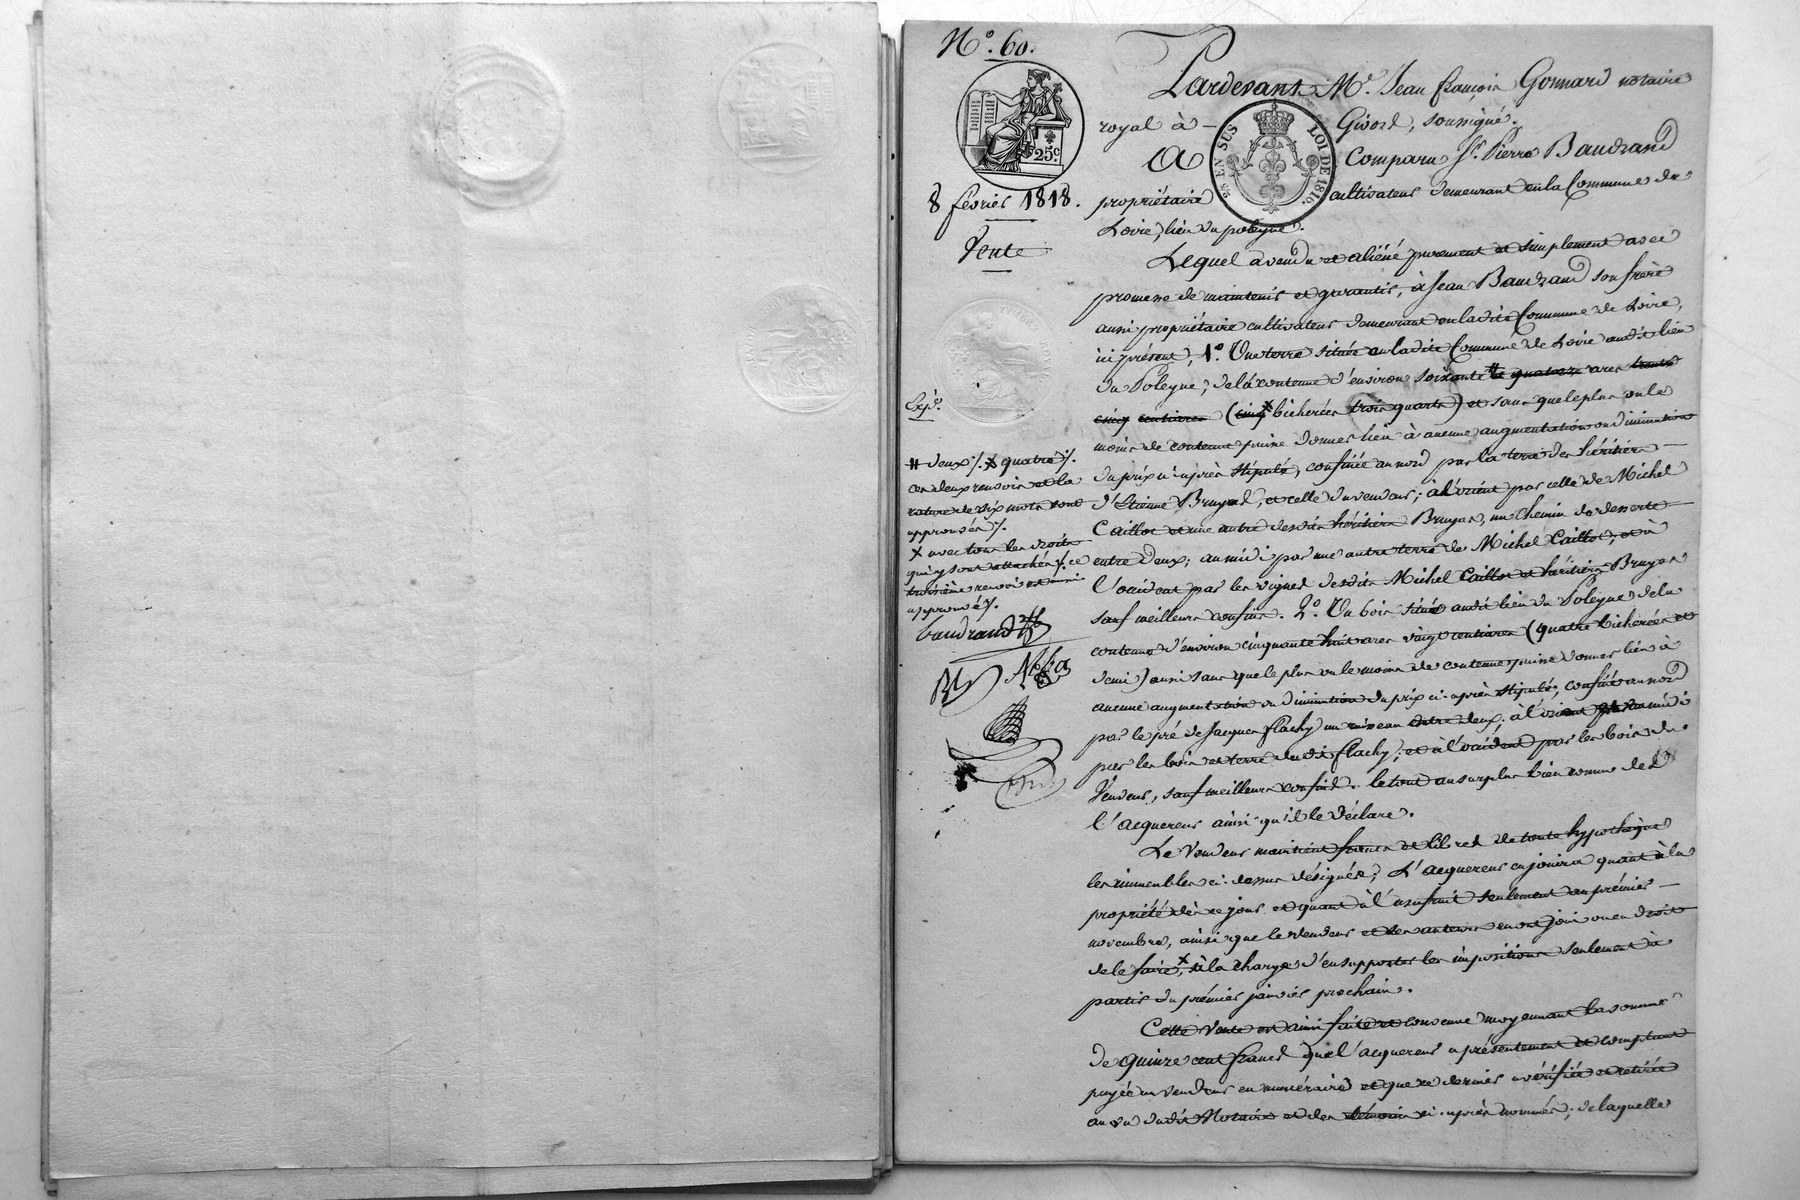 N.° 60.
25 c.
8 février 1818.
Vente
Exp.
# deux ./. x quatre ./.
ces deux renvois et la
rature de six mots sont
approuvés ./.
x avec tous les droits
qui y sont attachés ./. ce
troisième renvoi est aussi
approuvé ./.
baudrand
Pardevant M.e Jean françois Gonnard notaire
royal à — Givord, soussigné.
EN SUS LOI DE 1816.
A Comparu S.r Pierre Baudrand
propriétaire cultivateur demeurant en la Commune de
Loire, lieu du poleyne.
Lequel a vendu et aliéné purement et simplement avec
promesse de maintenir et garantir, à Jean Baudrand son frère
aussi propriétaire cultivateur demeurant en ladite Commune de Loire,
ici présent, 1.° Une terre située en ladite Commune de Loire audit lieu
du Poleyne, de la contenue d'environ soixante # quatorze ares trente
cinq centiares (cinq x bicherées trois quarts) et sans que le plus ou le
moins de contenue puisse donner lieu à aucune augmentation ou diminution
du prix ci-après stipulé, confinée au nord par la terre des héritiers —
d'Etienne Bruyas, et celle du vendeur; à l'orient par celle de Michel
Caillot et une autre desdits héritiers Bruyas, un chemin de desserte —
entre deux; au midi par une autre terre de Michel Caillot, et à
l'occident par les vignes desdits Michel Caillot et héritiers Bruyas
sauf meilleurs confins. 2.° Un bois situé audit lieu du Poleyne de la
contenue d'environ cinquante huit ares vingt centiares (quatre bicherées et
demi) aussi sans que le plus ou le moins de contenue puisse donner lieu à
aucune augmentation ou diminution du prix ci-après stipulé, confiné au nord
par le pré de Jacques flachy un ruisseau entre deux; à l'orient et au midi
par les bois et terre dudit flachy; et à l'occident par les bois du
Vendeur, sauf meilleurs confins. le tout au surplus bien connu de
l'acquereur ainsi qu'il le déclare.
Le Vendeur maintient francs et libres de toute hypothèque
les immeubles ci-dessus désignés; L'acquereur en jouira quant à la
propriété dès ce jour et quant à l'usufruit seulement au prémier —
novembre, ainsi que le vendeur et ses auteurs en ont joui ou eu droit
de le faire, x à la charge d'en supporter les impositions seulement à
partir du prémier janvier prochain.
Cette Vente est ainsi faite et convenue moyennant la somme
de quinze cent francs que l'acquereur a présentement et comptant
payée au vendeur en numéraire et que ce dernier a vérifiée et retirée
au vu dudit Notaire et des témoins ci-après nommés; de laquelle